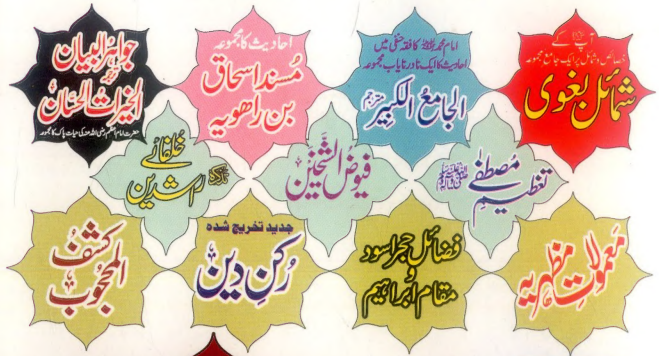 آپ ﷺ کے
خصائل و شمائل پر ایک جامع مجموعہ
شمائل بغوی
امام محمد کا فقہ حنفی میں
احادیث کا ایک نادر نایاب مجموعہ
الجامع الکبیر مترجم
احادیث کا مجموعہ
مسند اسحاق
بن راھویہ
جواہر البیان
ترجمہ
الخیرات الحسان
حضرت امام اعظم رضی اللہ عنہ کی حیات پاک کا مجموعہ
تعظیم مصطفےٰ ﷺ
فیوض الشیخین
خلفائے
راشدین
معمولات مظہریہ
فضائل حجر اسود
و
مقام ابراہیم
جدید تخریج شدہ
رکن دین
کشف
المحجوب